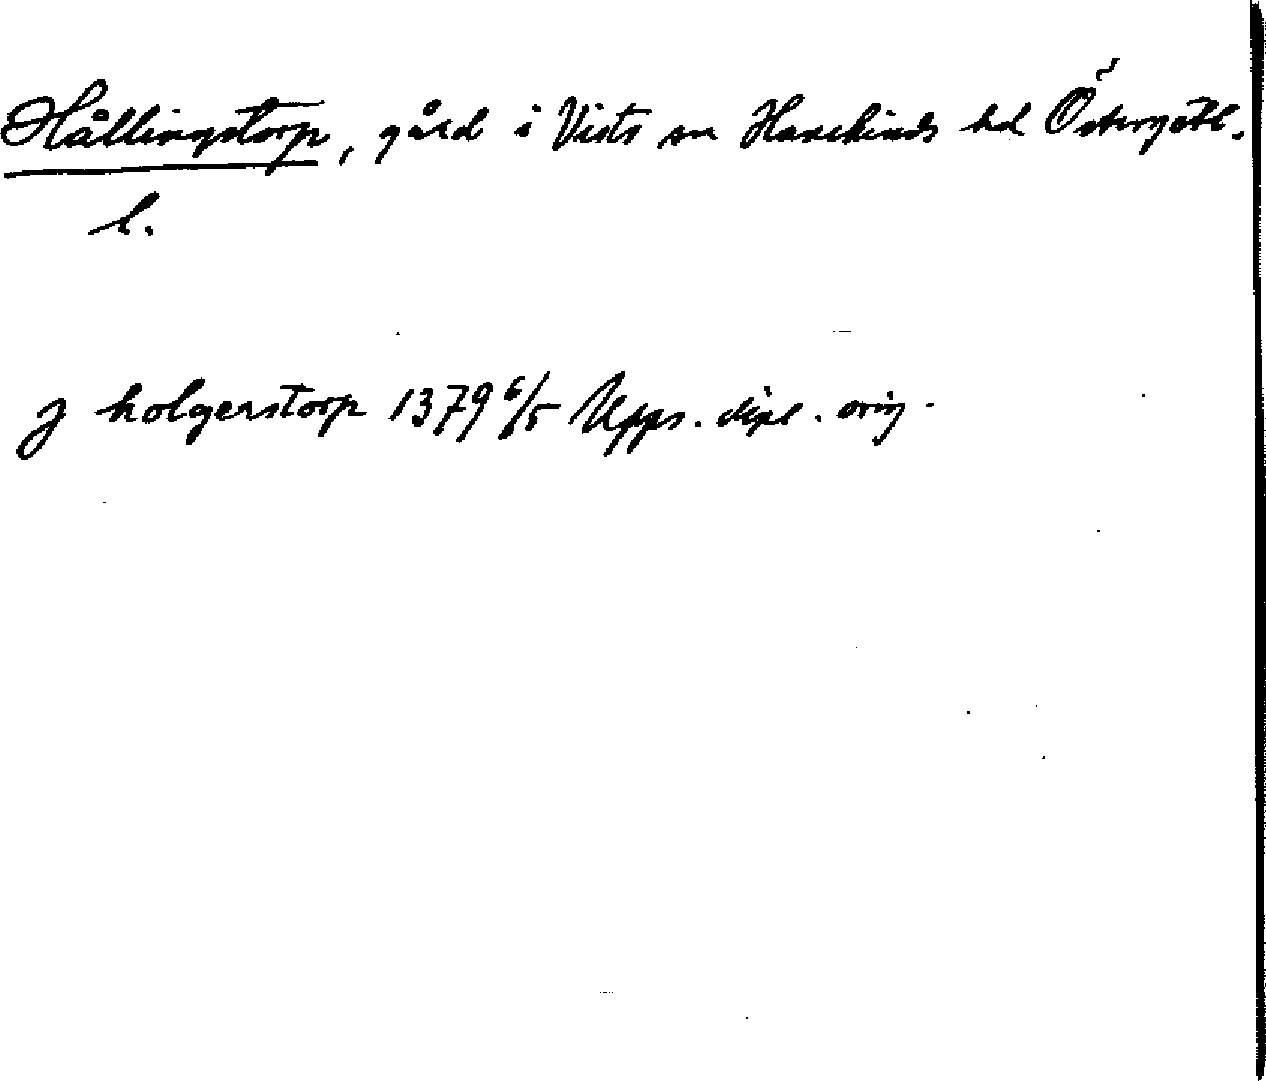 Hållingstorp, gård i Vists sn Hanekinds hd Östergötl.
l.
j holgerstorp 1379 6/5 Upps. dipl. orig.